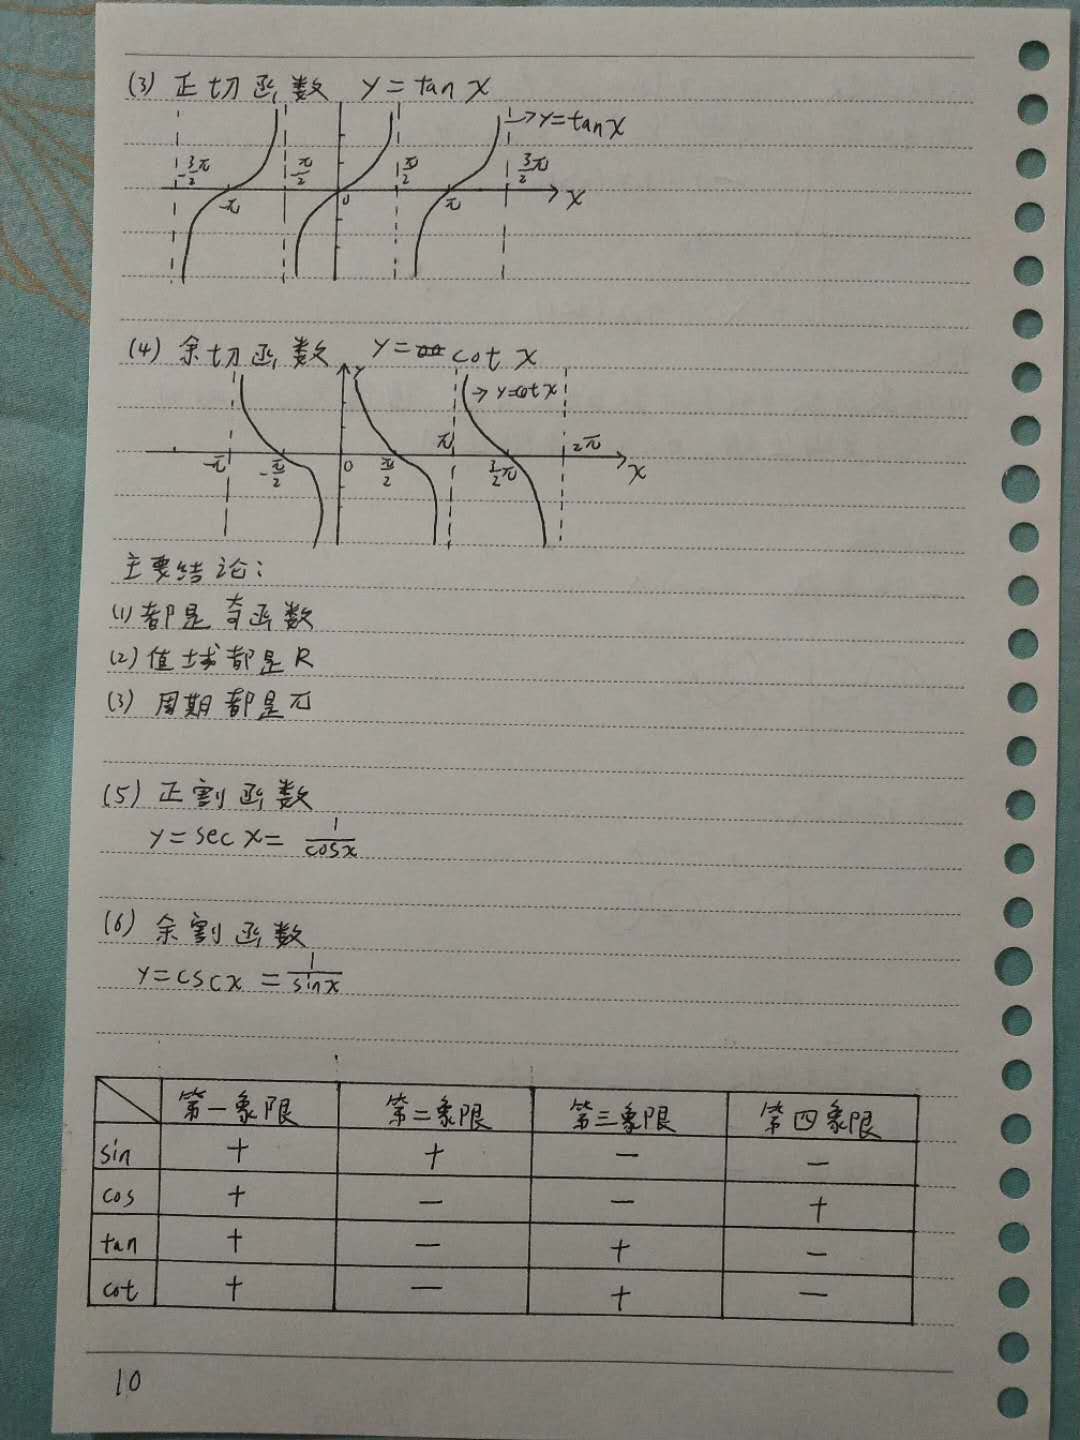 (3) 正切函数 y=tan x
→y=tan x
-3/2π -π/2 π/2 3/2π
-π 0 π x
(4) 余切函数 y=cot x
y →y=cot x
π 2π
-π -π/2 0 π/2 3/2π x
主要结论:
(1) 都是奇函数
(2) 值域都是R
(3) 周期都是π
(5) 正割函数
y=sec x= 1/cosx
(6) 余割函数
y=cscx = 1/sinx
第一象限 第二象限 第三象限 第四象限
sin + + - -
cos + - - +
tan + - + -
cot + - + -
10